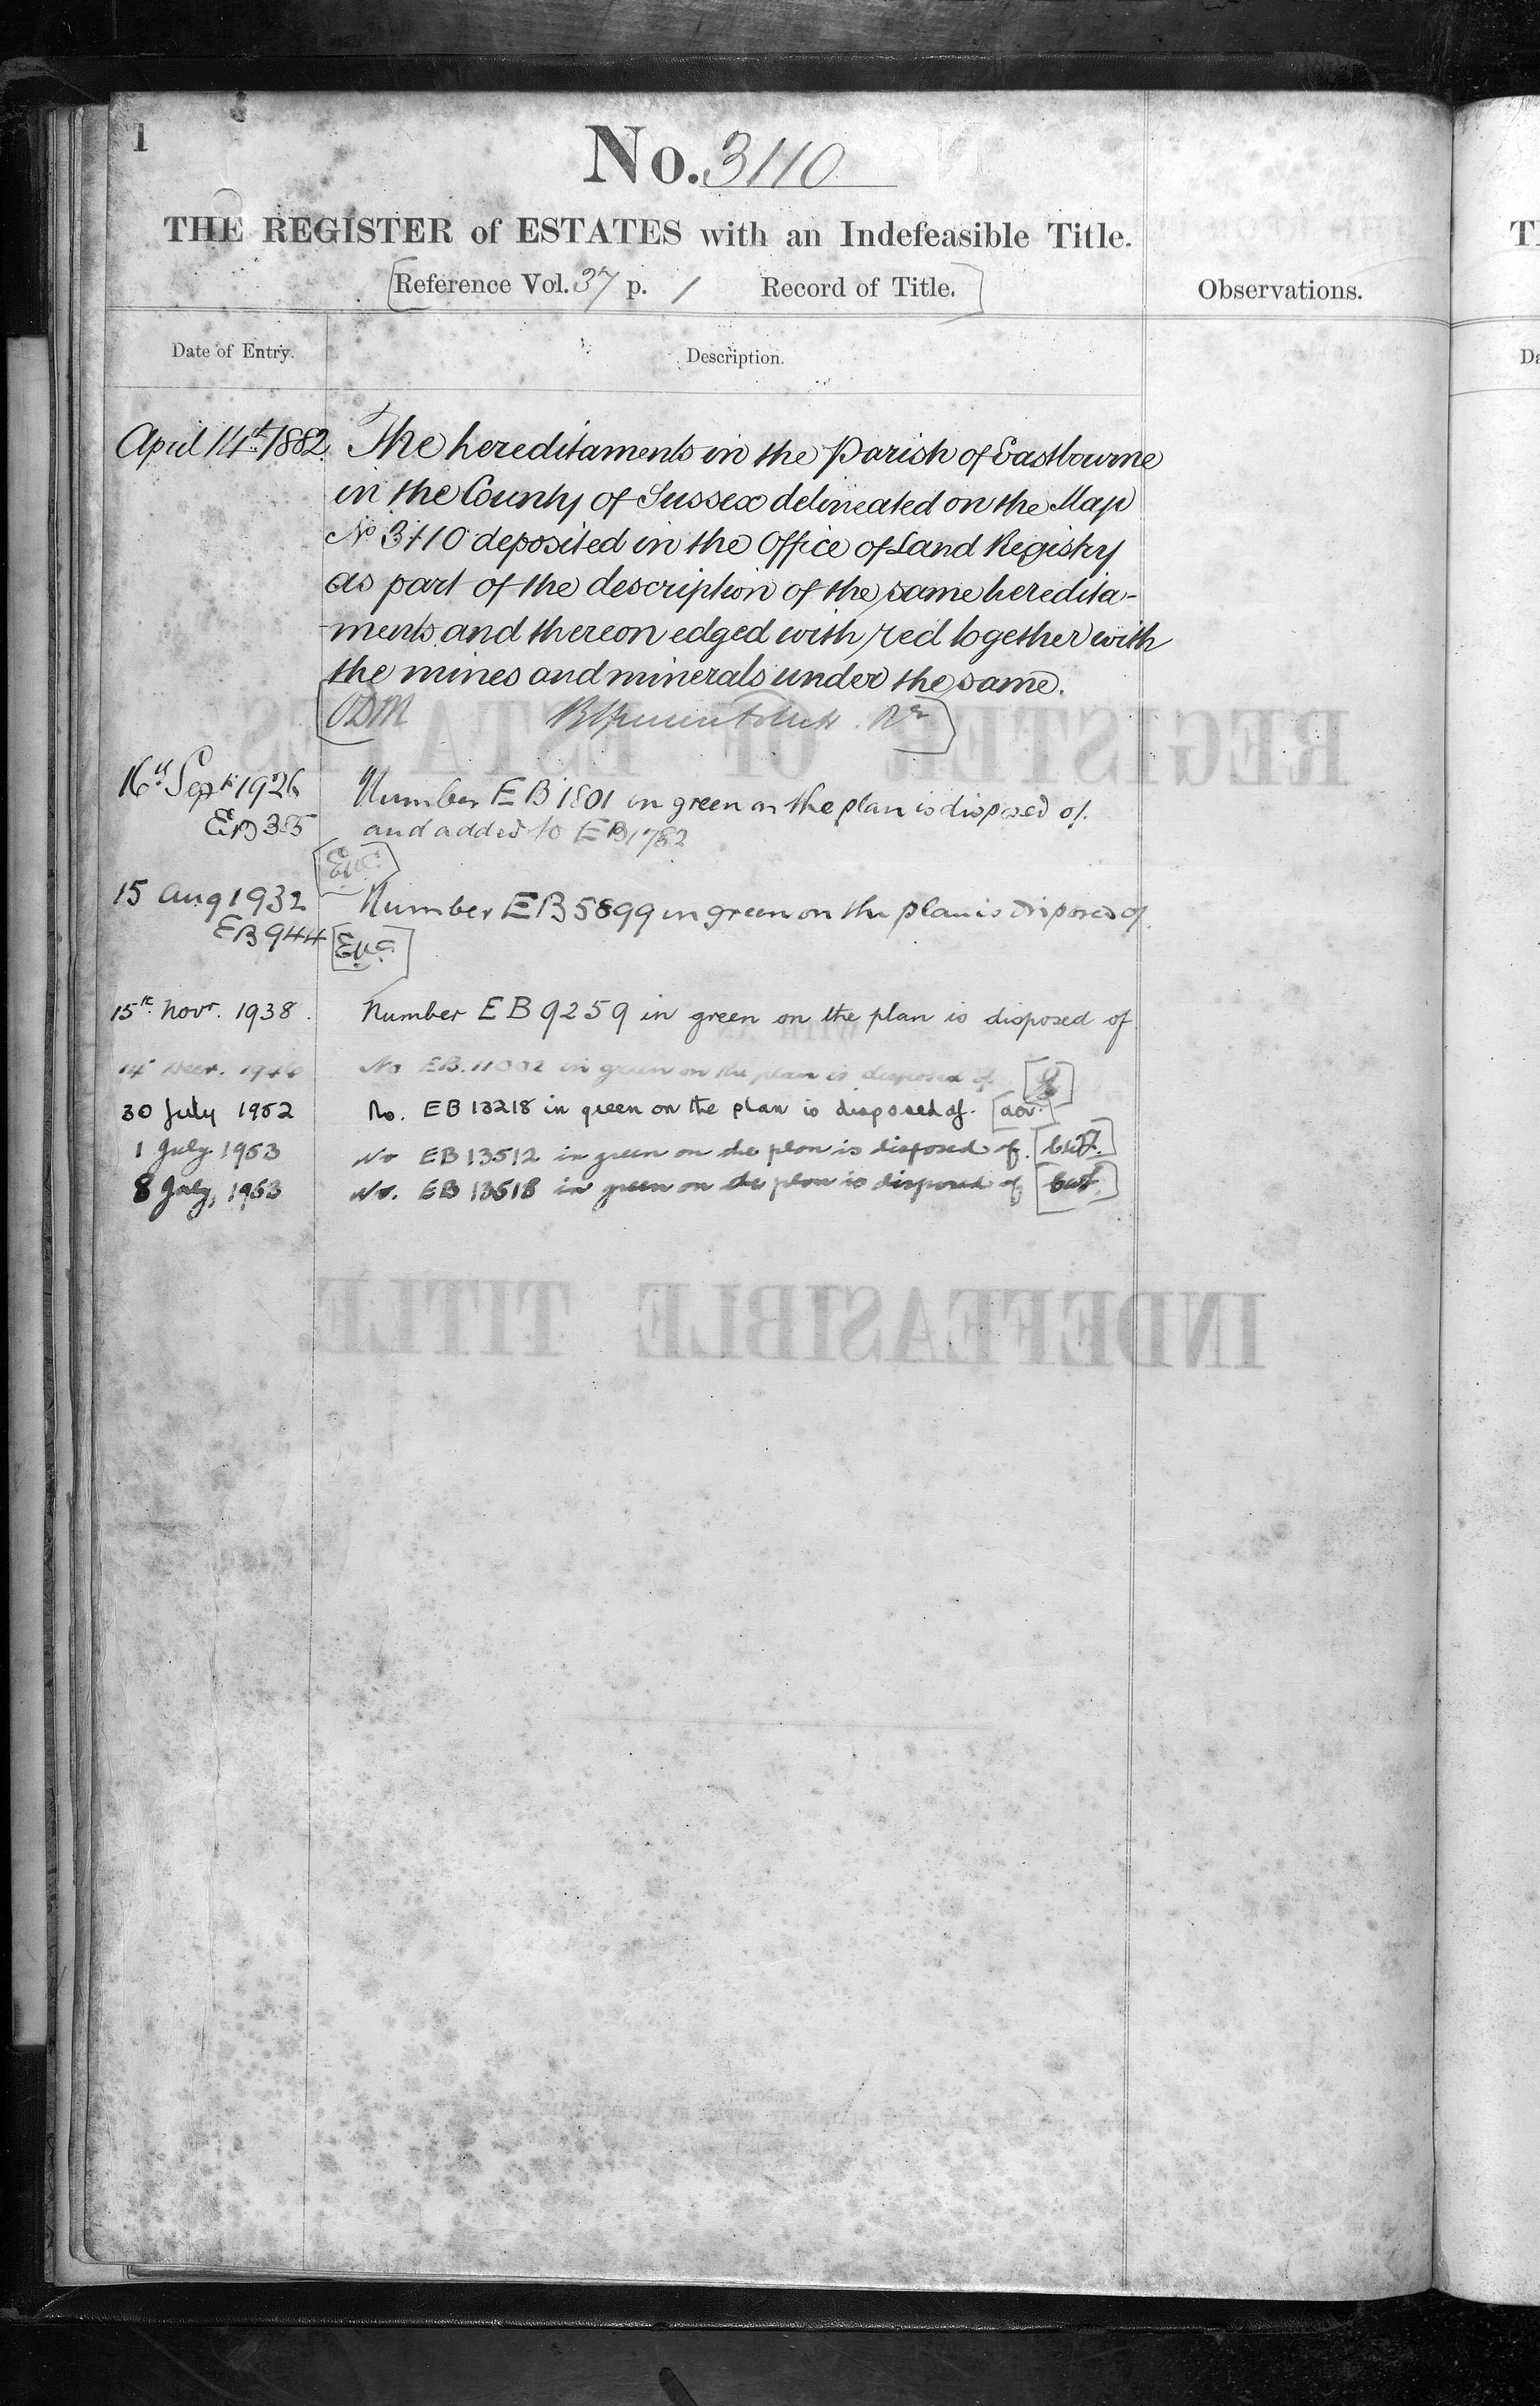 1
No. 3110
THE REGISTER of ESTATES with an Indefeasible Title.
[Reference Vol. 37 p. 1 Record of Title.]
Observations.
Date of Entry.
Description.
April 14th 1882. The hereditaments in the Parish of Eastbourne
in the County of Sussex delineated on the Map
No 3110 deposited in the Office of Land Registry
as part of the description of the same heredita-
-ments and thereon edged with red together with
the mines and minerals under the same.
16th Sept 1926 Number EB1801 in green on the plan is disposed of
EB385 and added to EB1782
15 Aug 1932 Number EB5899 in green on the plan is disposed of.
EB944
15th Novr. 1938. Number EB9259 in green on the plan is disposed of
14 Decr. 1946 No EB.11002 in green on the plan is disposed of
30 July 1952 No. EB13218 in green on the plan is disposed of.
1 July 1953 No EB13512 in green on the plan is disposed of.
8 July, 1953 No. EB13518 in green on the plan is disposed of
REGISTER OF ESTATES
WITH AN
INDEFEASIBLE TITLE